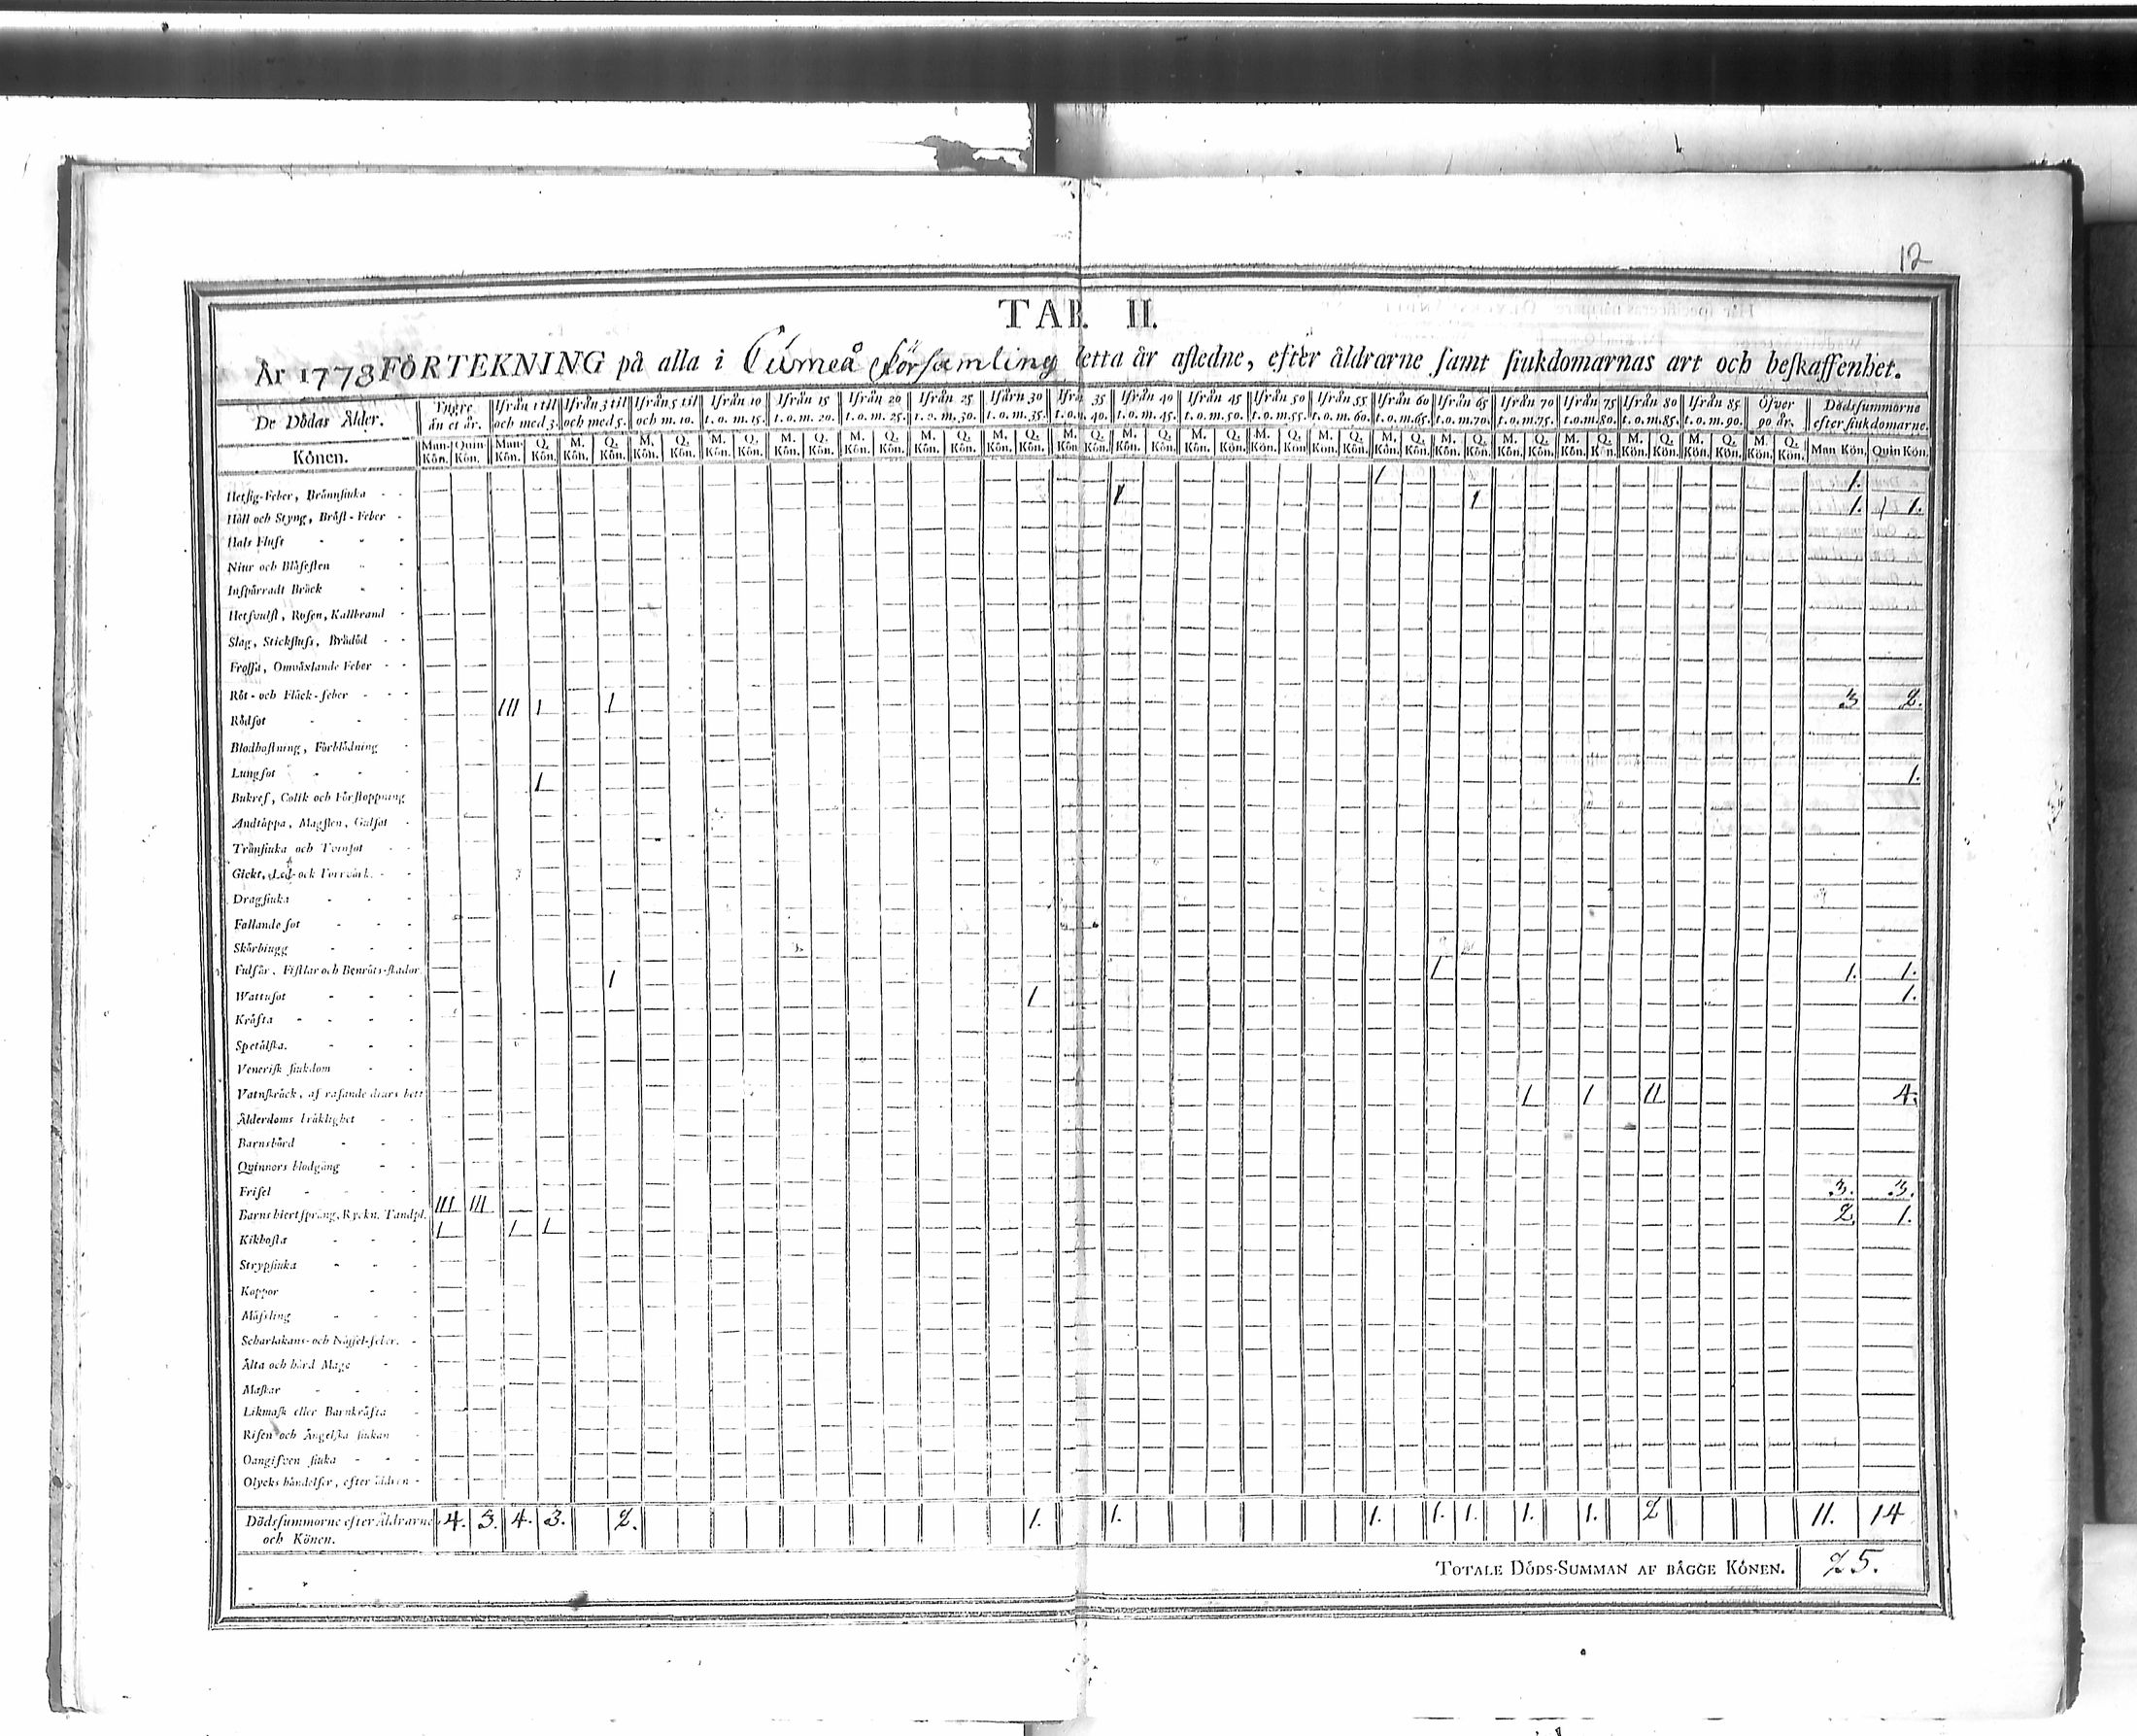 12
TAB. II.
År 1778 FÖRTEKNING på alla i Församling detta år afledne, efter åldrarne samt siukdomarnas art och beskaffenhet.
De Dödas Ålder. Yngre än et år. Ifrån 1 till och med 3. Ifrån 3 til och med 5. Ifrån 5 til och m. 10. Ifrån 10 t. o. m. 15. Ifrån 15 t. o. m. 20. Ifrån 20 t. o. m. 25. Ifrån 25 t. o. m. 30. Ifårn 30 t. o. m. 35. Ifrå 35 t. o. m. 40. Ifrån 40 t. o. m. 45. Ifrån 45 t. o. m. 50. Ifrån 50 t. o. m. 55. Ifrån 55 t. o. m. 60. Ifrån 60 t. o. m. 65. Ifrån 65 t. o. m. 70. Ifrån 70 t. o. m. 75. Ifrån 75 t. o. m. 80. Ifrån 80 t. o. m. 85. Ifrån 85 t. o. m. 90. Öfver 90 år. Dödssummorne efter siukdomarne.
Könen. Man. Kön. Quin Kön. Man. Kön. Q. Kön. M. Kön. Q. Kön. M. Kön. Q. Kön. M. Kön. Q. Kön. M. Kön. Q. Kön. M. Kön. Q. Kön. M. Kön. Q. Kön. M. Kön. Q. Kön. M. Kön Q. Kön. M. Kön. Q. Kön. M. Kön. Q. Kön. M. Kön. Q. Kön. M. Kön. Q. Kön. M. Kön. Q. Kön. M. Kön. Q. Kön. M. Kön. Q. Kön. M. Kön. Q. Kön. M. Kön. Q. Kön. M. Kön. Q. Kön. M. Kön. Q. Kön. Man Kön. Quin Kön.
Hetsig-Feber, Brännsiuka - - 1 1.
Håll och Styng, Bröst-Feber - 1 1 1. 1.
Hals Fluss - - -
Niur och Blåsesten - -
Inspärradt Bråck - -
Hetsvulst, Rosen, Kallbrand -
Slag, Stickfluss, Brådöd - -
Frossa, Omväxlande Feber - -
Röt- och Fläck-feber - - -
Rödsot - - - III I I 3 2.
Blodhostning, Förblödning -
Lungsot - - -
Bukref, Colik och Förstoppning I 1.
Andtäppa, Magsten, Gulsot -
Trånsiuka och Tvinsot - -
Gickt, Led- ock Torrvärk. - -
Dragsiuka - - -
Fallande sot - - -
Skörbiugg - - -
Fulsår, Fistlar och Benröts-skador
Wattusot - - - I I 1. 1.
Kräfta - - - - I 1.
Spetälska. - - -
Venerisk siukdom - -
Vatnskräck, af rasande diurs bett
Ålderdoms bräklighet - - I I II 4.
Barnsbörd - - -
Qvinnors blodgång - -
Frisel - - - -
Barns hiertspräng, Ryckn. Tandpl. III III 3. 3.
Kikhosta - - - I I I 2. 1.
Strypsiuka - - -
Koppor - -
Mässling - - -
Scharlakans- och Nässel-feber. -
Älta och hård Mage - -
Maskar - - - -
Likmask eller Barnkräfta -
Risen och Ängelska siukan -
Oangifven siuka - - -
Olycks händelser, efter sidien -
Dödssummorne efter Åldrarne och Könen. 4. 3. 4. 3. 2. 1. 1. 1. 1. 1. 1. 1. 2 11. 14
TOTALE DÖDS-SUMMAN AF BÄGGE KÖNEN. 25.